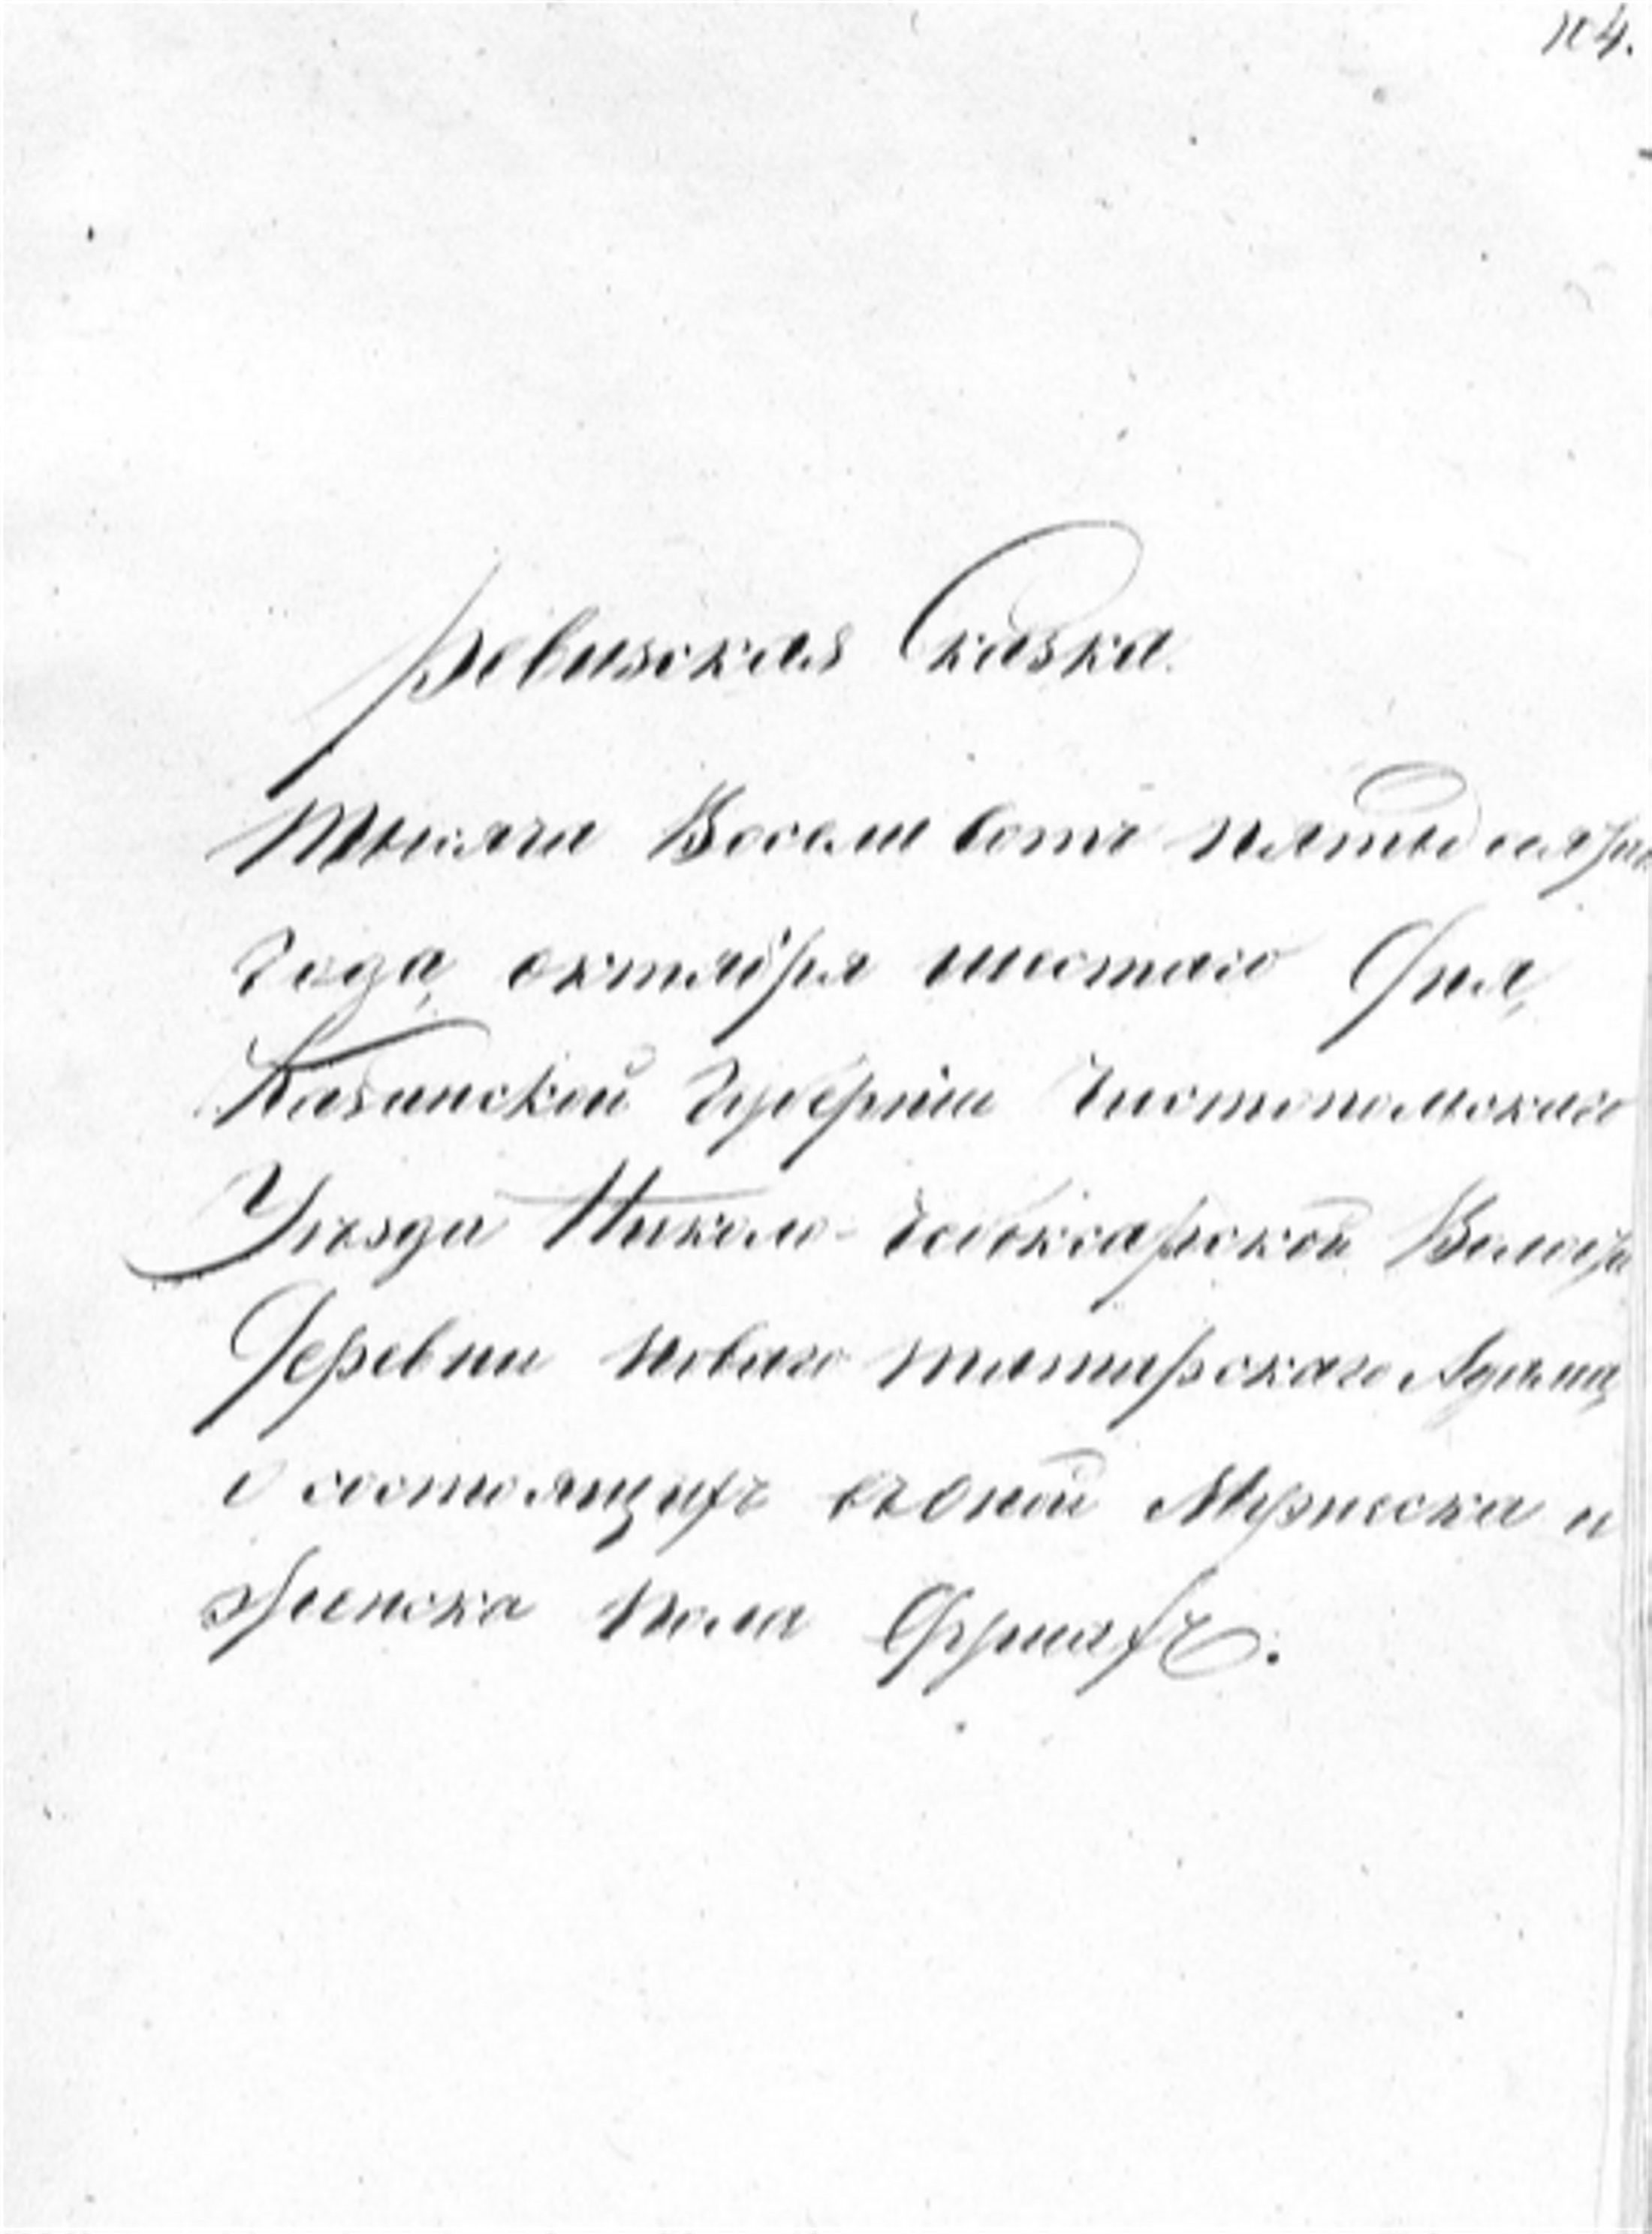 104.
Ревизская Сказка.
Тысяча Восемь сотъ пятьдесят
года, октября шестаго Дня,
Казанской Губерніи Чистопольскаго
Уѣзда Николо-Чебоксарской Волости
Деревни Новаго татарскаго Адама,
о состоящихъ въ оной Мужеска и
женска пола Душахъ.